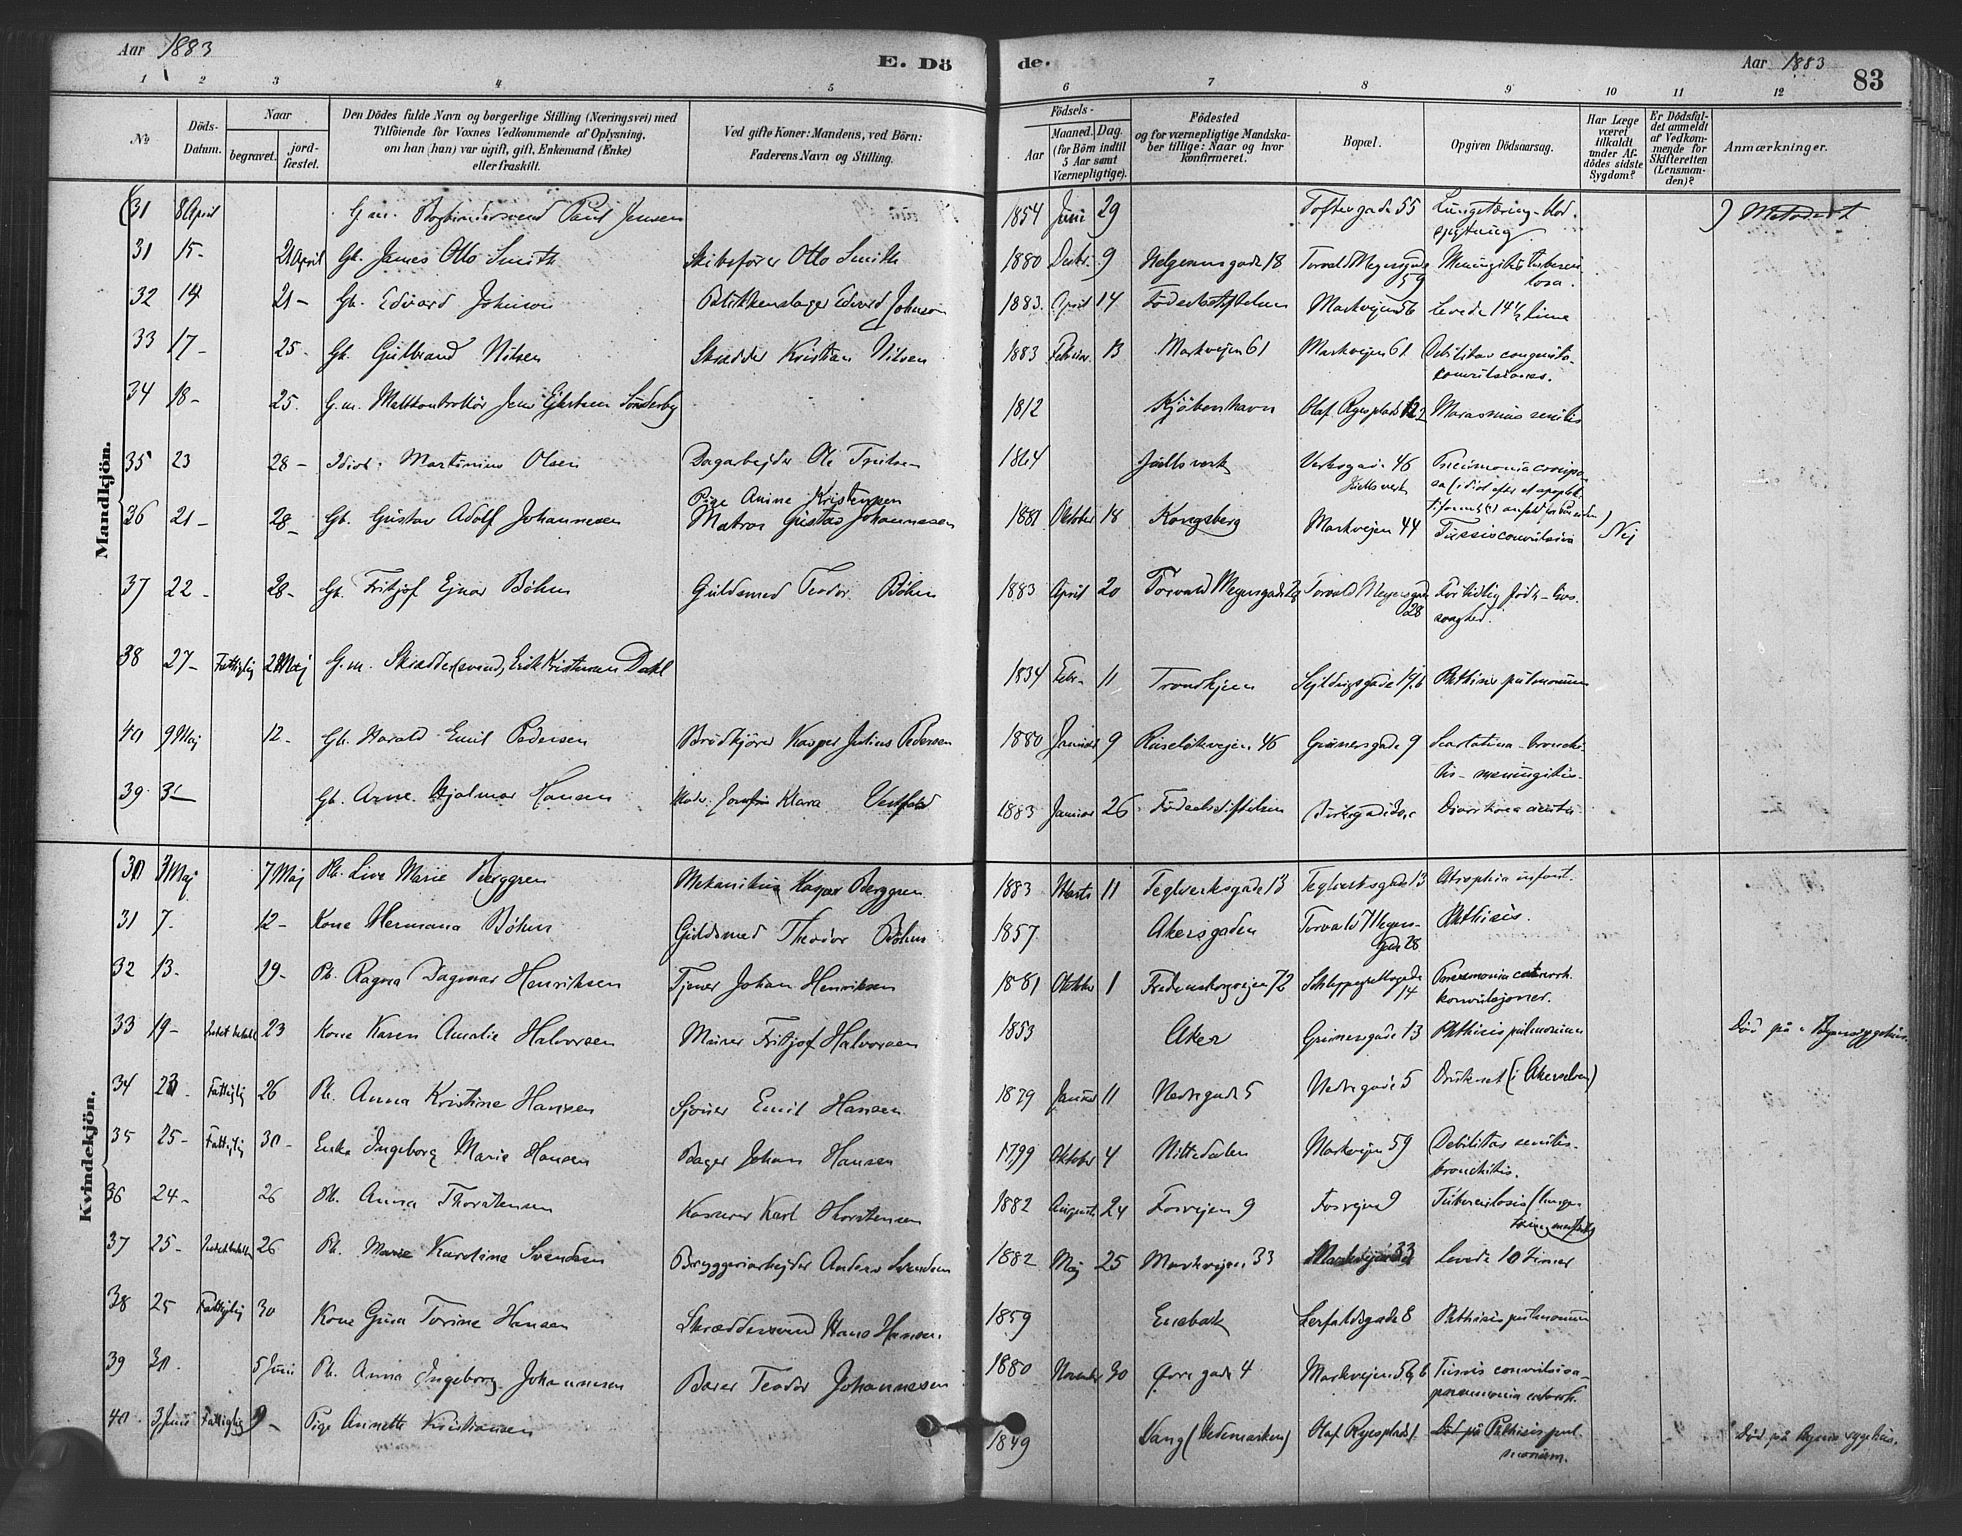 Aar 1883
E. Dö
de.
Aar 1883
83
1 2 3 4 5 6 7 8 9 10 11 12
No
Döds-Datum.
Naar
begravet.
jord-fæstet.
Den Dödes fulde Navn og borgerlige Stilling (Næringsvei) med
Tilföiende for Voxnes Vedkommende af Oplysning,
om han (hun) var ugift, gift, Enkemand (Enke)
eller fraskilt.
Ved gifte Koner: Mandens, ved Börn:
Faderens Navn og Stilling.
Födsels-
Aar
Maaned. Dag.
(for Börn indtil
5 Aar samt
Værnepligtige).
Födested
og for værnepligtige Mandska-
ber tillige: Naar og hvor
konfirmeret.
Bopæl.
Opgiven Dödsaarsag.
Har Læge
været
tilkaldt
under Af-
dödes sidste
Sygdom?
Er Dödsfal-
det anmeldt
af Vedkom-
mende for
Skifteretten
(Lensman-
den)?
Anmærkninger.
Mandkjön.
31 8 April G.m. Bogbindersvend Paul Jensen 1854 Juni 29 Toftesgade 55 Lungetæring - Blod-
spytning. Metodist
31 15- 21 April Gb. James Otto Smith Skibsfører Otto Smith 1880 Decbr. 9 Helgesensgade 18 Torvald Meyersgade 59 Meningitis tuberculosa.
32 14 21- Gb. Edvard Johnson Edvard Johnson 1883. April 14 Födselsstiftelsen Markvejen 56 Levede 14½ time
33 17- 25- Gb. Gulbrand Nilsen Skrædder Kristian Nilsen 1883 Februar 13 Markvejen 61 Markvejen 61 Debilitas congenita-
convulsiones.
34 18- 25. G.m. Jens Sönderby 1812 Kjöbenhavn Olaf Ryesplads Marasmus senilis
35 23 28- Idiot. Martinius Olsen Dagarbejder Ole 1864 Verksgade 46 Pneumonia
36 21- 28- Gb. Gustav Adolf Johannesen Pige Anine Kristensen
Matros Gustav Johannessen 1881 Oktober 18 Kongsberg Markvejen 44 Tussis convulsiva Nej
37 22- 28- Gb. Fritjof Ejnar Böhm Guldsmed Teodor Böhm 1883 April 20 Torvald Meyersgade 28 Torvald Meyersgade 28 For tidlig født - livs-
svaghed.
38 27- Fattiglig 2 Maj G.m. Skrædder(svend) Erik Kristensen Dahl 1834 Febr. 11 Trondhjem Sejldugsgade Phthisis pulmonum
40 9 Maj 12- Gb. Harald Emil Pedersen Brödkjörer Kasper Julius Pedersen 1880 Januar 9 Ruselökvejen 46 Grünersgade 9 Scarlatina - bronchi-
tis - meningitis.
39 3- Gb. Arne Hjalmar Hansen Moder: Josefine Klara 1883 Januar 26 Födselsstiftelsen Diarrhoea acuta
Kvindekjön.
30 3 Maj 7 Maj Pb. Live Marie Berggren Mekanikus Kasper Berggren 1883 Marts 11 Teglverksgade 13 Teglverksgade 13 Atrophia infant.
31 7- 12- Kone Hermana Böhm Guldsmed Theodor Böhm 1857. Akersgaden Torvald Meyers-
gade 28 Phthisis.
32 13- 19- Pb. Ragna Dagmar Henriksen Tjener Johan Henriksen 1881 Oktober 1 Fredensborgvejen 72 Schleppegrellsgade 14 Pneumonia catarrh.
konvulsjoner.
33 19- 23 Kone Karen Amalie Halvorsen Murer Fritjof Halvorsen 1853 Aker Grünersgade 13 Phthisis pulmonum Död på Byens sygehus.
34 23- Fattiglig 26 Pb. Anna Kristine Hansen Emil Hansen 1879 Januar 11 Nedregade 5 Nedregade 5 Druknet (i Akerselven)
35 25- Fattiglig 30- Enke Ingeborg Marie Hansen Bager Johan Hansen 1799 Oktober 4 Nittedalen Markvejen 59 Debilitas senilis-
bronchitis.
36 24- 26 Pb. Anna Thorstensen Karl Thorstensen 1882 August 24 Fosvejen 9 Fosvejen 9 Tuberculosis
37 25- 26 Pb. Marie Karoline Svendsen Bryggeriarbejder Anders Svendsen 1882 Maj 25 Markvejen 33 Markvejen 33 Levede 10 Timer
38 25 Fattiglig 30 Kone Gina Torine Hansen Skræddersvend Hans Hansen. 1859 Enebak Lerfaldsgade 8 Phthisis pulmonum
39 30. 5 Juni Pb. Anna Ingeborg Johannesen Teodor Johannessen 1880 November 30 Övregade 4 Markvejen Tussis convulsiva
pneumonia catarrh.
40 3 Juni Fattiglig 9- Pige Annette Kristiansen 1849 Vang (Hedemarken) Olaf Ryesplads 1 Död på Phthisis pul-
monum. Död på Byens sygehus.